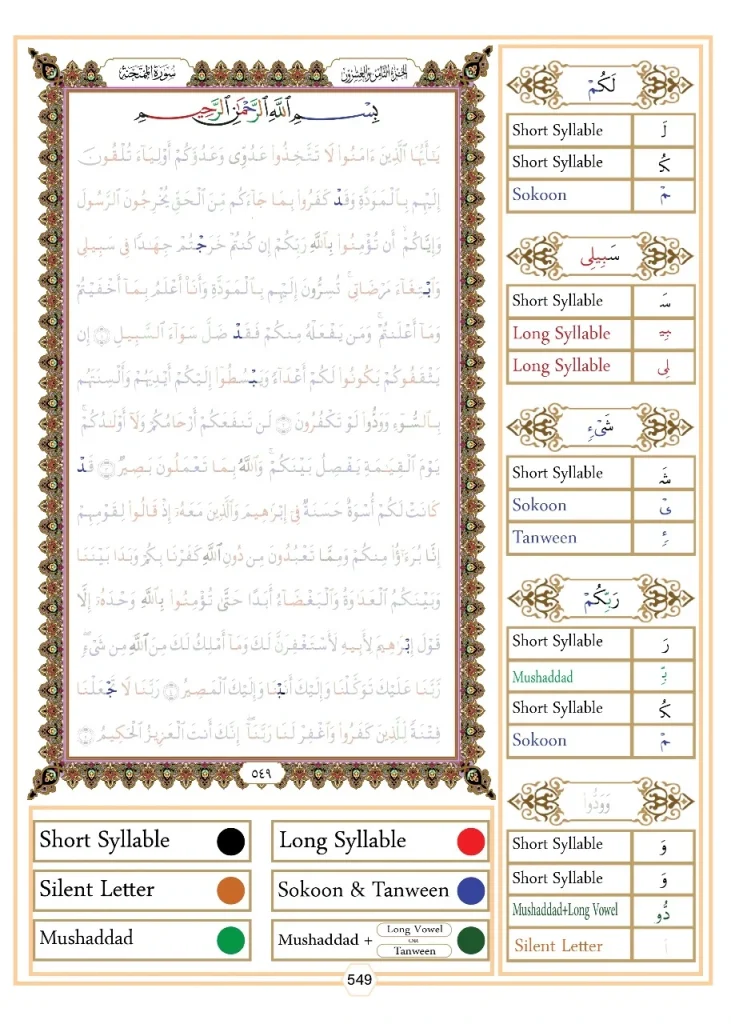 سورة الممتحنة
الجزء الثامن والعشرون
بِسْمِ ٱللَّهِ ٱلرَّحْمَٰنِ ٱلرَّحِيمِ
يَٰٓأَيُّهَا ٱلَّذِينَ ءَامَنُوا۟ لَا تَتَّخِذُوا۟ عَدُوِّى وَعَدُوَّكُمْ أَوْلِيَآءَ تُلْقُونَ
إِلَيْهِم بِٱلْمَوَدَّةِ وَقَدْ كَفَرُوا۟ بِمَا جَآءَكُم مِّنَ ٱلْحَقِّ يُخْرِجُونَ ٱلرَّسُولَ
وَإِيَّاكُمْ ۙ أَن تُؤْمِنُوا۟ بِٱللَّهِ رَبِّكُمْ إِن كُنتُمْ خَرَجْتُمْ جِهَٰدًا فِى سَبِيلِى
وَٱبْتِغَآءَ مَرْضَاتِى ۚ تُسِرُّونَ إِلَيْهِم بِٱلْمَوَدَّةِ وَأَنَا۠ أَعْلَمُ بِمَآ أَخْفَيْتُمْ
وَمَآ أَعْلَنتُمْ ۚ وَمَن يَفْعَلْهُ مِنكُمْ فَقَدْ ضَلَّ سَوَآءَ ٱلسَّبِيلِ ١ إِن
يَثْقَفُوكُمْ يَكُونُوا۟ لَكُمْ أَعْدَآءً وَيَبْسُطُوٓا۟ إِلَيْكُمْ أَيْدِيَهُمْ وَأَلْسِنَتَهُم
بِٱلسُّوٓءِ وَوَدُّوا۟ لَوْ تَكْفُرُونَ ٢ لَن تَنفَعَكُمْ أَرْحَامُكُمْ وَلَآ أَوْلَٰدُكُمْ ۚ
يَوْمَ ٱلْقِيَٰمَةِ يَفْصِلُ بَيْنَكُمْ ۚ وَٱللَّهُ بِمَا تَعْمَلُونَ بَصِيرٌ ٣ قَدْ
كَانَتْ لَكُمْ أُسْوَةٌ حَسَنَةٌ فِىٓ إِبْرَٰهِيمَ وَٱلَّذِينَ مَعَهُۥٓ إِذْ قَالُوا۟ لِقَوْمِهِمْ
إِنَّا بُرَءَٰٓؤُا۟ مِنكُمْ وَمِمَّا تَعْبُدُونَ مِن دُونِ ٱللَّهِ كَفَرْنَا بِكُمْ وَبَدَا بَيْنَنَا
وَبَيْنَكُمُ ٱلْعَدَٰوَةُ وَٱلْبَغْضَآءُ أَبَدًا حَتَّىٰ تُؤْمِنُوا۟ بِٱللَّهِ وَحْدَهُۥٓ إِلَّا
قَوْلَ إِبْرَٰهِيمَ لِأَبِيهِ لَأَسْتَغْفِرَنَّ لَكَ وَمَآ أَمْلِكُ لَكَ مِنَ ٱللَّهِ مِن شَىْءٍ ۖ
رَّبَّنَا عَلَيْكَ تَوَكَّلْنَا وَإِلَيْكَ أَنَبْنَا وَإِلَيْكَ ٱلْمَصِيرُ ٤ رَبَّنَا لَا تَجْعَلْنَا
فِتْنَةً لِّلَّذِينَ كَفَرُوا۟ وَٱغْفِرْ لَنَا رَبَّنَآ ۖ إِنَّكَ أَنتَ ٱلْعَزِيزُ ٱلْحَكِيمُ ٥
٥٤٩
لَكُمْ
Short Syllable لَ
Short Syllable كُ
Sokoon مْ
سَبِيلِى
Short Syllable سَ
Long Syllable بِي
Long Syllable لِى
شَىْءٍ
Short Syllable شَ
Sokoon ىْ
Tanween ءٍ
رَبِّكُمْ
Short Syllable رَ
Mushaddad بِّ
Short Syllable كُ
Sokoon مْ
وَوَدُّوا۟
Short Syllable وَ
Short Syllable وَ
Mushaddad+Long Vowel دُّو
Silent Letter ا
Short Syllable
Long Syllable
Silent Letter
Sokoon & Tanween
Mushaddad
Mushaddad + Long Vowel OR Tanween
549